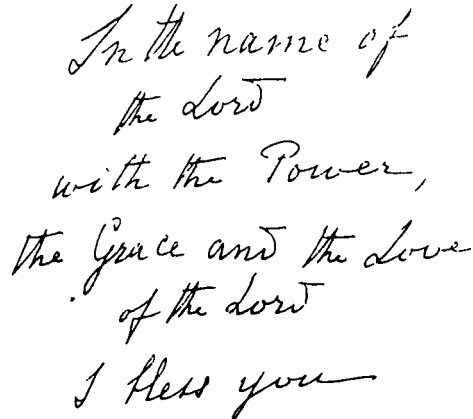 In the name of
the Lord
with the Power,
the Grace and the Love
of the Lord
I bless you